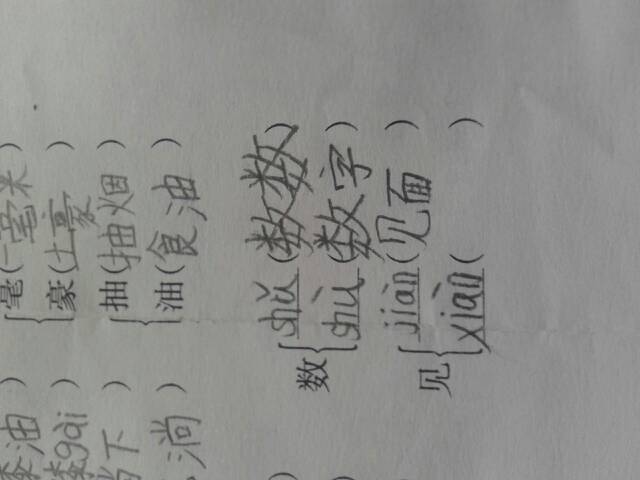 油） 毫（一毫米）
gài） 豪（土豪）
下） 抽（抽烟）
淌） 油（食油）
数 shǔ（数数）
shù（数字）
见 jiàn（见面）
xiàn（ ）